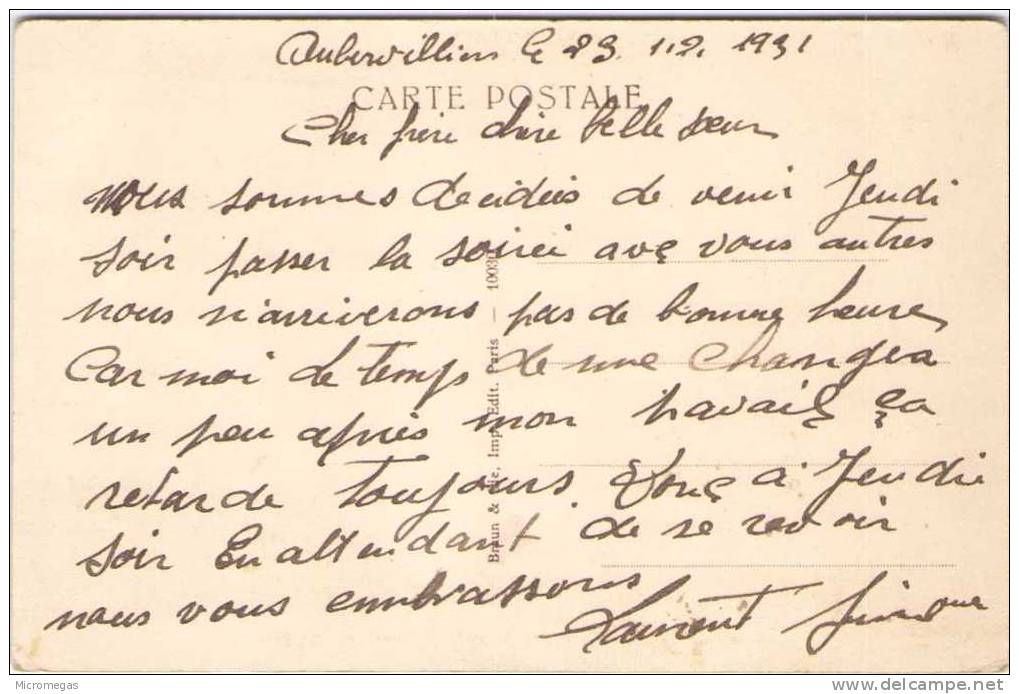 Aubervilliers le 23. 12. 1931
CARTE POSTALE
Cher frère chère belle sœur
nous sommes decidées de venir Jeudi
soir passer la soireé aveç vous autres
nous n'arriverons pas de bonne heure
Car moi le temps de me changer
un peu après mon travail ça
retarde toujours Donç à Jeudi
soir En attendant de se revoir
nous vous embrassons
Laurent Simone
Braun & Cie, Imp. Edit. Paris — 10030
Micromegas
delcampe.net